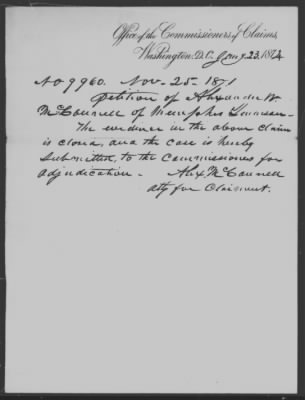 Office of the Commissioners of Claims,
Washington, D.C. Jany. 23, 1874
No 9960. Nov - 25 - 1871
Petition of Alexander W
McConnell of Memphis Tennessee -
The evidence in the above claim
is closed, and the case is hereby
submitted, to the Commissioners for
adjudication - Alex McConnell
atty for Claimant.